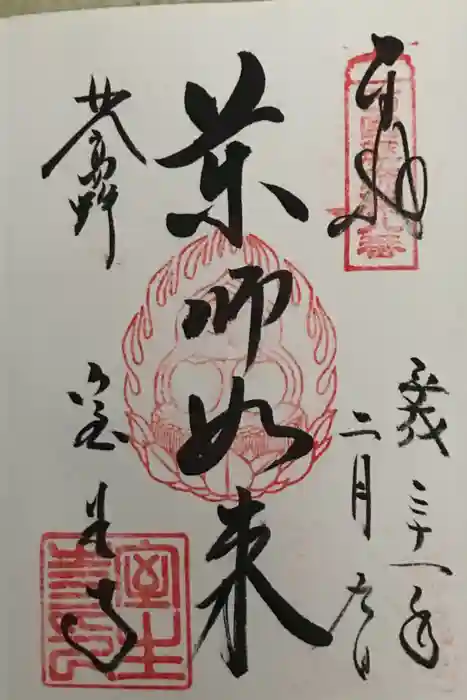 奉拝
平成三十一年
二月 日
薬師如来
女人高野
室生寺